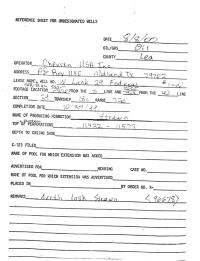 REFERENCE SHEET FOR UNDESIGNATED WELLS
DATE 8/8/00
OIL/GAS Oil
COUNTY Lea
OPERATOR Chevron USA Inc
ADDRESS P O Box 1150 Midland Tx 79702
LEASE NAME, WELL NO. N Lusk 29 Federal
FOOTAGE LOCATION FROM THE S LINE AND FROM THE W LINE
SECTION 29 TOWNSHIP RANGE 32e
COMPLETION DATE
NAME OF PRODUCING FORMATION Strawn
TOP OF PERFORATIONS 11422 - 11573
DEPTH TO CASING SHOE
C-123 FILED
NAME OF POOL FOR WHICH EXTENSION WAS ASKED
ADVERTISED FOR HEARING CASE NO.
NAME OF POOL FOR WHICH EXTENSION WAS ADVERTISED
PLACED IN BY ORDER NO. R-
REMARKS North Lusk Strawn